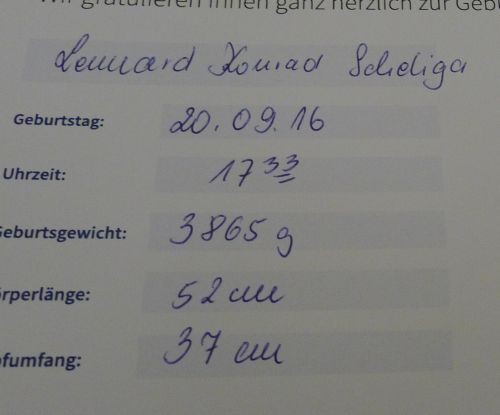 Wir gratulieren Ihnen ganz herzlich zur Gebu
Lennard Konrad Scheliga
Geburtstag: 20.09.16
Uhrzeit: 17 33
Geburtsgewicht: 3865 g
örperlänge: 52 cm
pfumfang: 37 cm